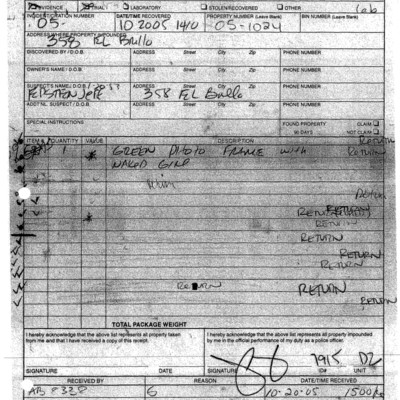 EVIDENCE TRIAL LABORATORY STOLEN/RECOVERED OTHER
INCIDENT/CITATION NUMBER DATE/TIME RECOVERED PROPERTY NUMBER (Leave Blank) BIN NUMBER (Leave Blank)
05- 10 2005 1410 05-1024
ADDRESS WHERE PROPERTY IMPOUNDED
358 EL Brillo
DISCOVERED BY / D.O.B. ADDRESS Street City Zip PHONE NUMBER
OWNER'S NAME / D.O.B. ADDRESS Street City Zip PHONE NUMBER
SUSPECT'S NAME / D.O.B. ADDRESS Street City Zip PHONE NUMBER
EPSTEIN, Jeff 358 EL Brillo
ADD'TNL SUSPECT / D.O.B. ADDRESS Street City Zip PHONE NUMBER
SPECIAL INSTRUCTIONS FOUND PROPERTY CLAIM
90 DAYS NOT CLAIM
ITEM # QUANTITY VALUE DESCRIPTION RETURN
GREEN PHOTO FRAME with RETURN
NAKED GIRL
RETURN
RETURN
RETURN
RETURN
RETURN
RETURN
RETURN RETURN
RETURN
TOTAL PACKAGE WEIGHT
I hereby acknowledge that the above list represents all property taken
from me and that I have received a copy of this receipt.
I hereby acknowledge that the above list represents all property impounded
by me in the official performance of my duty as a police officer.
7915 DZ
SIGNATURE DATE SIGNATURE ID# UNIT
RECEIVED BY REASON DATE/TIME RECEIVED
6 10-20-05 1500